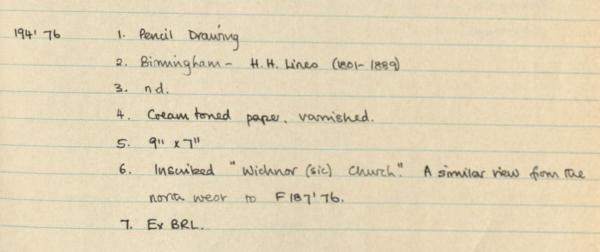 194' 76 1. Pencil Drawing
2. Birmingham - H.H. Lines (1801-1889)
3. n.d.
4. Cream toned paper, varnished.
5. 9" x 7"
6. Inscribed "Wichnor (sic) Church". A similar view from the
north west to F187'76.
7. Ex BRL.